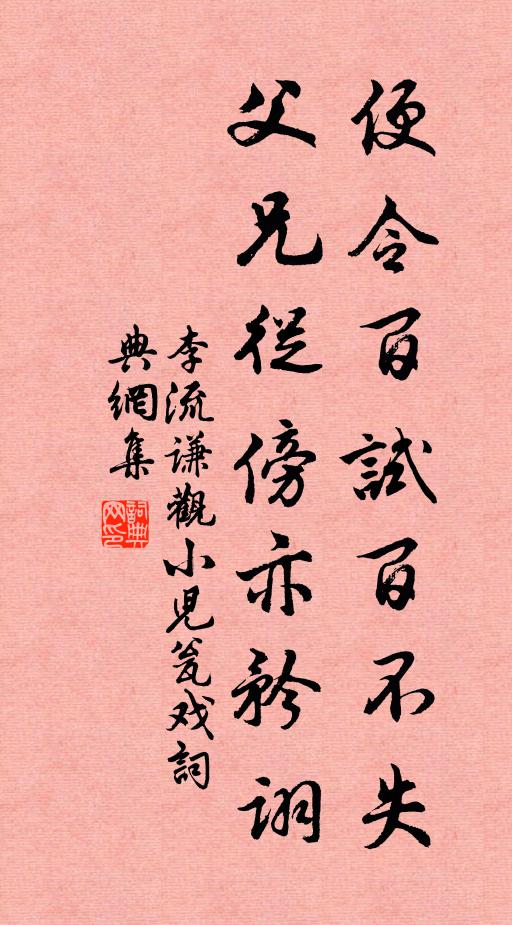 便令百試百不失
父兄從傍亦矜詡
李流谦觀小兒瓮戏詞
典網集
詞典网印